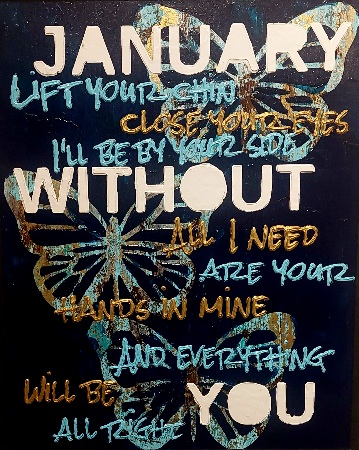 JANUARY
LIFT YOUR CHIN
CLOSE YOUR EYES
I'LL BE BY YOUR SIDE
WITHOUT
ALL I NEED
ARE YOUR
HANDS IN MINE
AND EVERYTHING
WILL BE
YOU
ALL RIGHT